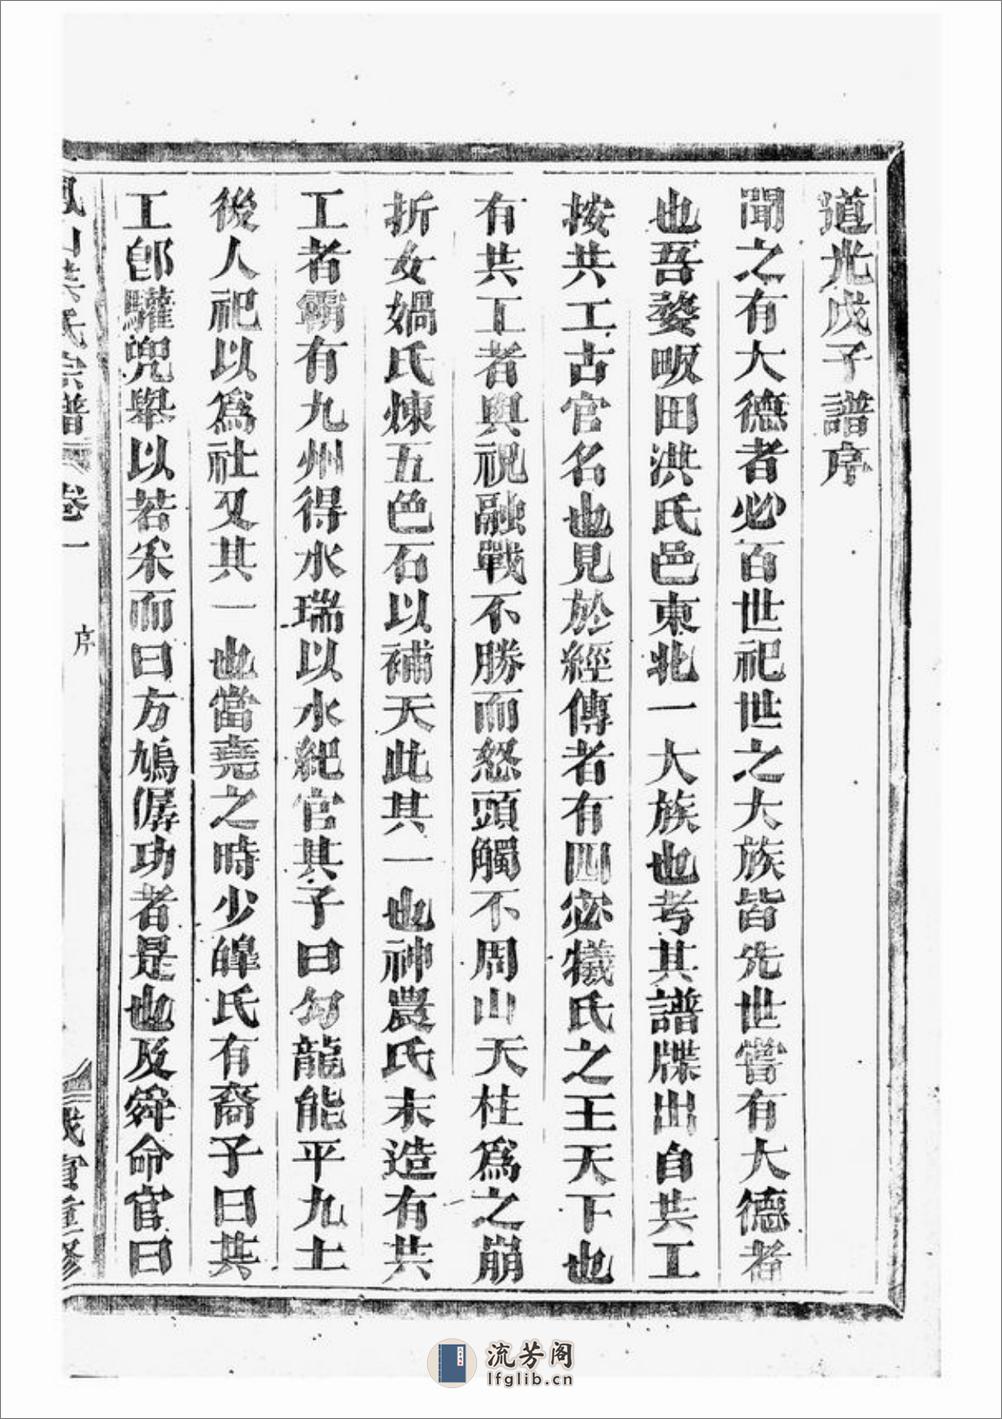 道光戊子譜序
聞之有大德者必百世祀世之大族皆先世嘗有大德者
也吾婺畈田洪氏邑東北一大族也考其譜牒出自共工
按共工古官名也見於經傳者有四宓犧氏之王天下也
有共工者與祝融戰不勝而怒頭觸不周山天柱爲之崩
折女媧氏煉五色石以補天此其一也神農氏末造有共
工者霸有九州得水瑞以水紀官其子曰勾龍能平九土
後人祀以爲社又其一也當堯之時少皞氏有裔子曰共
工卽驩兜舉以若采而曰方鳩僝功者是也及舜命官曰
氏宗譜 卷一
序
重修
流芳阁
lfglib.cn